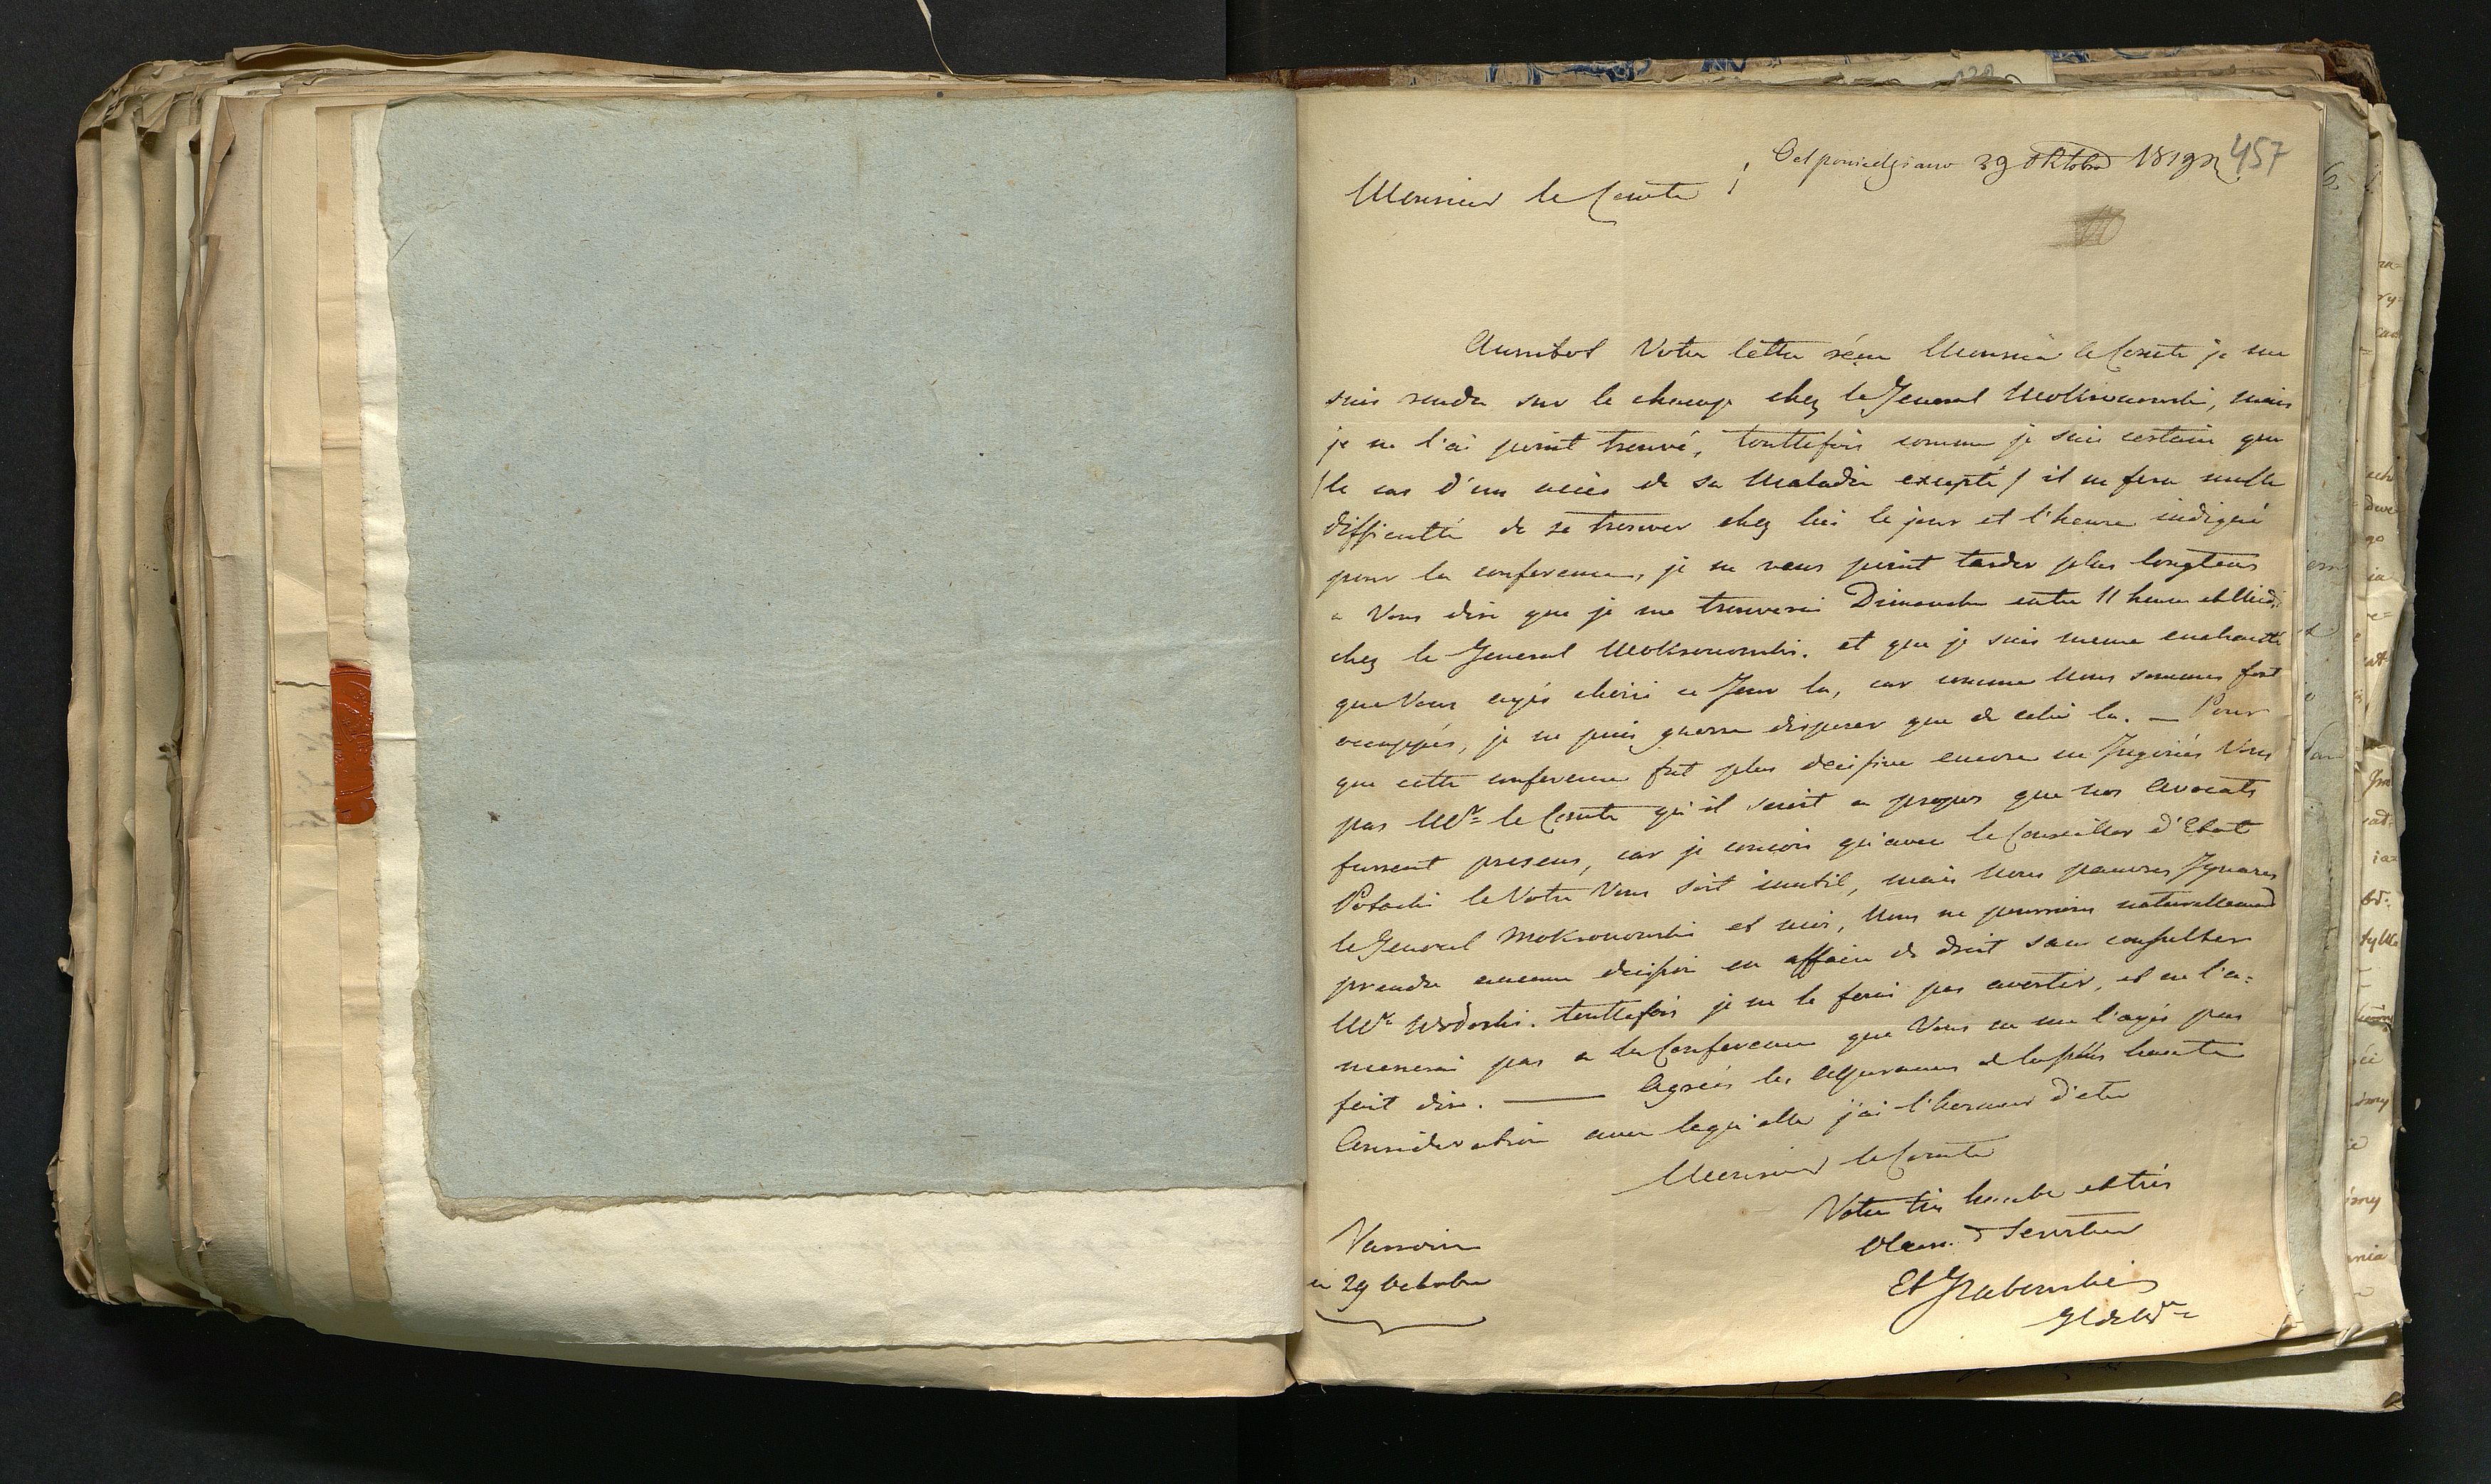 Odpowiedziano 29 Oktobra 1819 r. 457
Monsieur le Comte !
Aussitot Votre lettre réçue Monsieur le Comte je me
suis rendu sur le champ chez le General Mokronowski, mais
je ne l'ai point trouvé, touttefois comme je suis certain que
(le cas d'un accès de sa Maladie excepté) il ne fera nulle
difficulté de se trouver chez lui le jour et l'heure indiqué
pour la conference, je ne veux point tarder plus longtems
a Vous dire que je me trouverai Dimanche entre 11 heure et Midi
chez le General Mokronowski. et que je suis meme enchanté
que Vous ayés choisi ce Jour la, car comme Nous sommes fort
occuppés, je ne puis guerre disposer que de celui la. — Pour
que cette conference fut plus decisive encore ne Jugeriés Vous
pas Mr. le Comte qu'il seroit a propos que nos Avocats
fussent presens, car je concois qu'avec le Conseiller d'Etat
Potocki le Votre Vous soit inutil, mais Nous pauvres Ignares
le General Mokronowski et moi, Nous ne pourrions naturellement
prendre aucune decision en affaire de droit sans consulter
Mr. . touttefois je ne le ferai pas avertir, et ne l'a=
menerai pas a la Conference que Vous ne me l'ayés pas
fait dire. — Agreés les Assurances de la plus haute
Consideration avec laqu'elle j'ai l'honneur d'etre
Monsieur le Comte
Votre très humble et très
Obeis. Serviteur
Varsovie
ce 29 Octobre
Et Grabowski